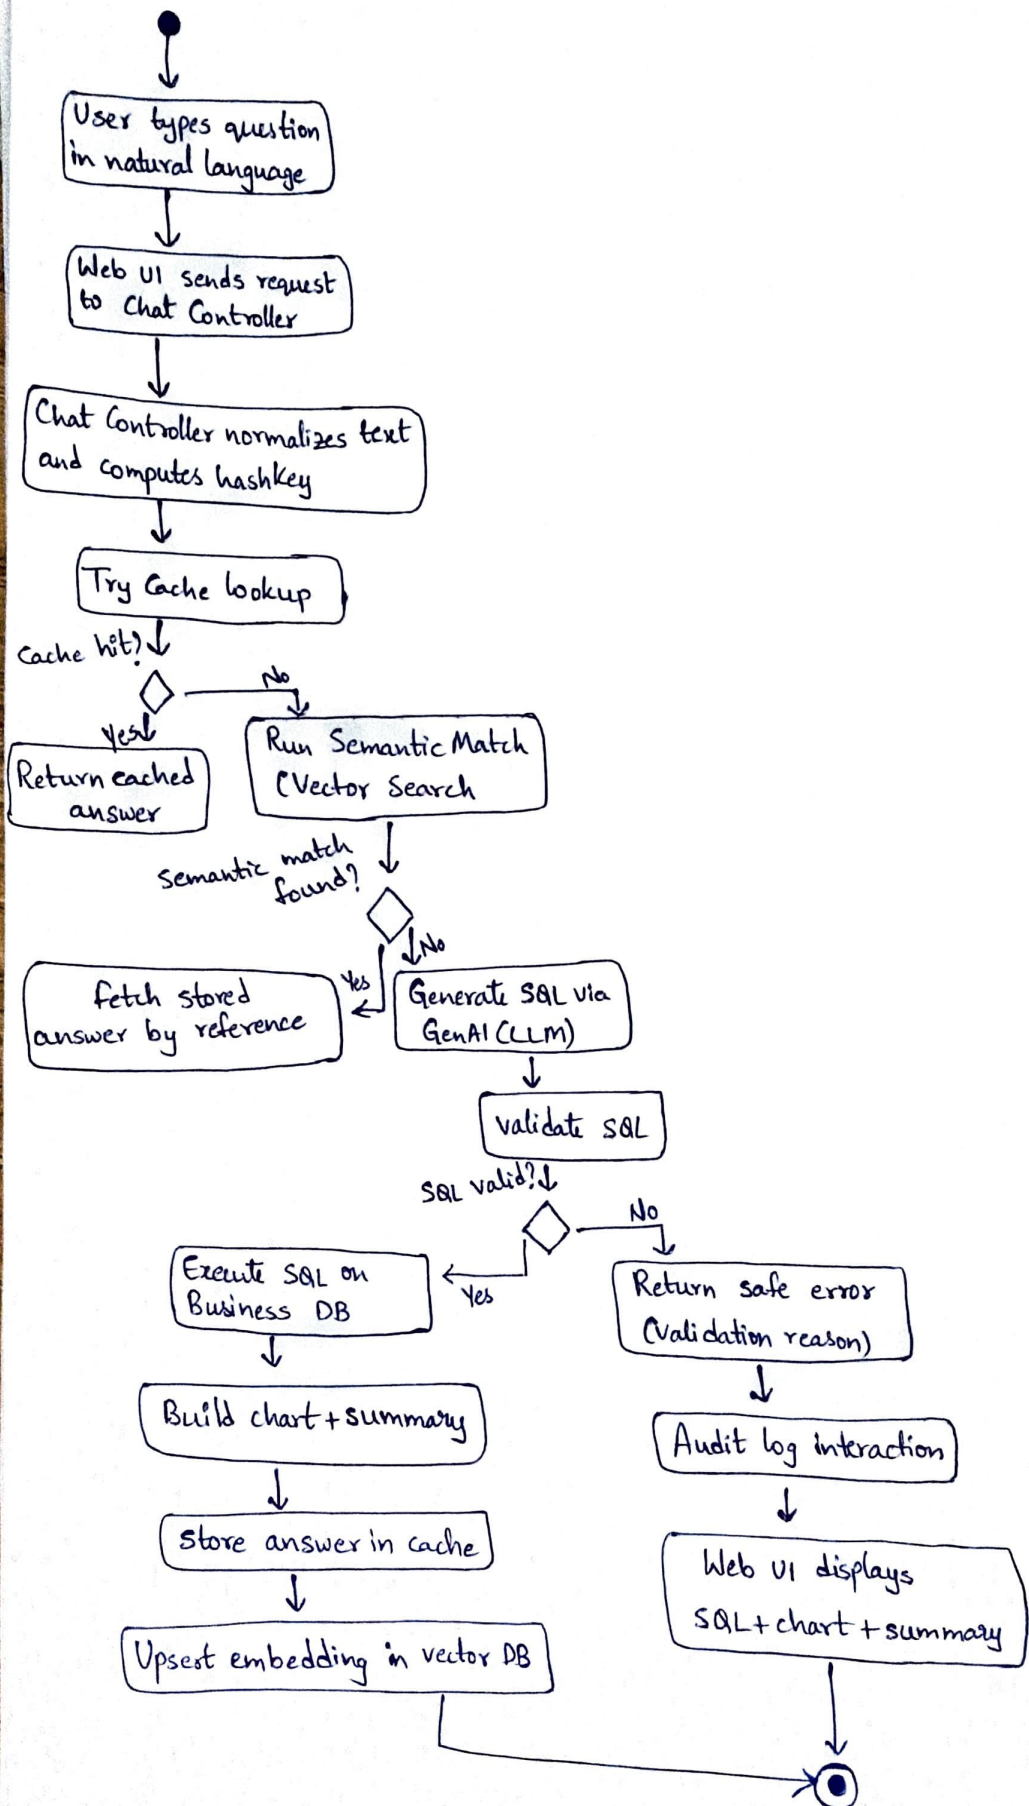 User types question
in natural language
Web UI sends request
to Chat Controller
Chat Controller normalizes text
and computes hashkey
Try Cache lookup
Cache hit?
No
Yes
Return cached
answer
Run Semantic Match
(Vector Search
Semantic match
found?
No
Yes
fetch stored
answer by reference
Generate SQL via
GenAI (LLM)
validate SQL
SQL valid?
No
Yes
Execute SQL on
Business DB
Return safe error
(validation reason)
Build chart + summary
Audit log interaction
Store answer in cache
Web UI displays
SQL + chart + summary
Upsert embedding in vector DB